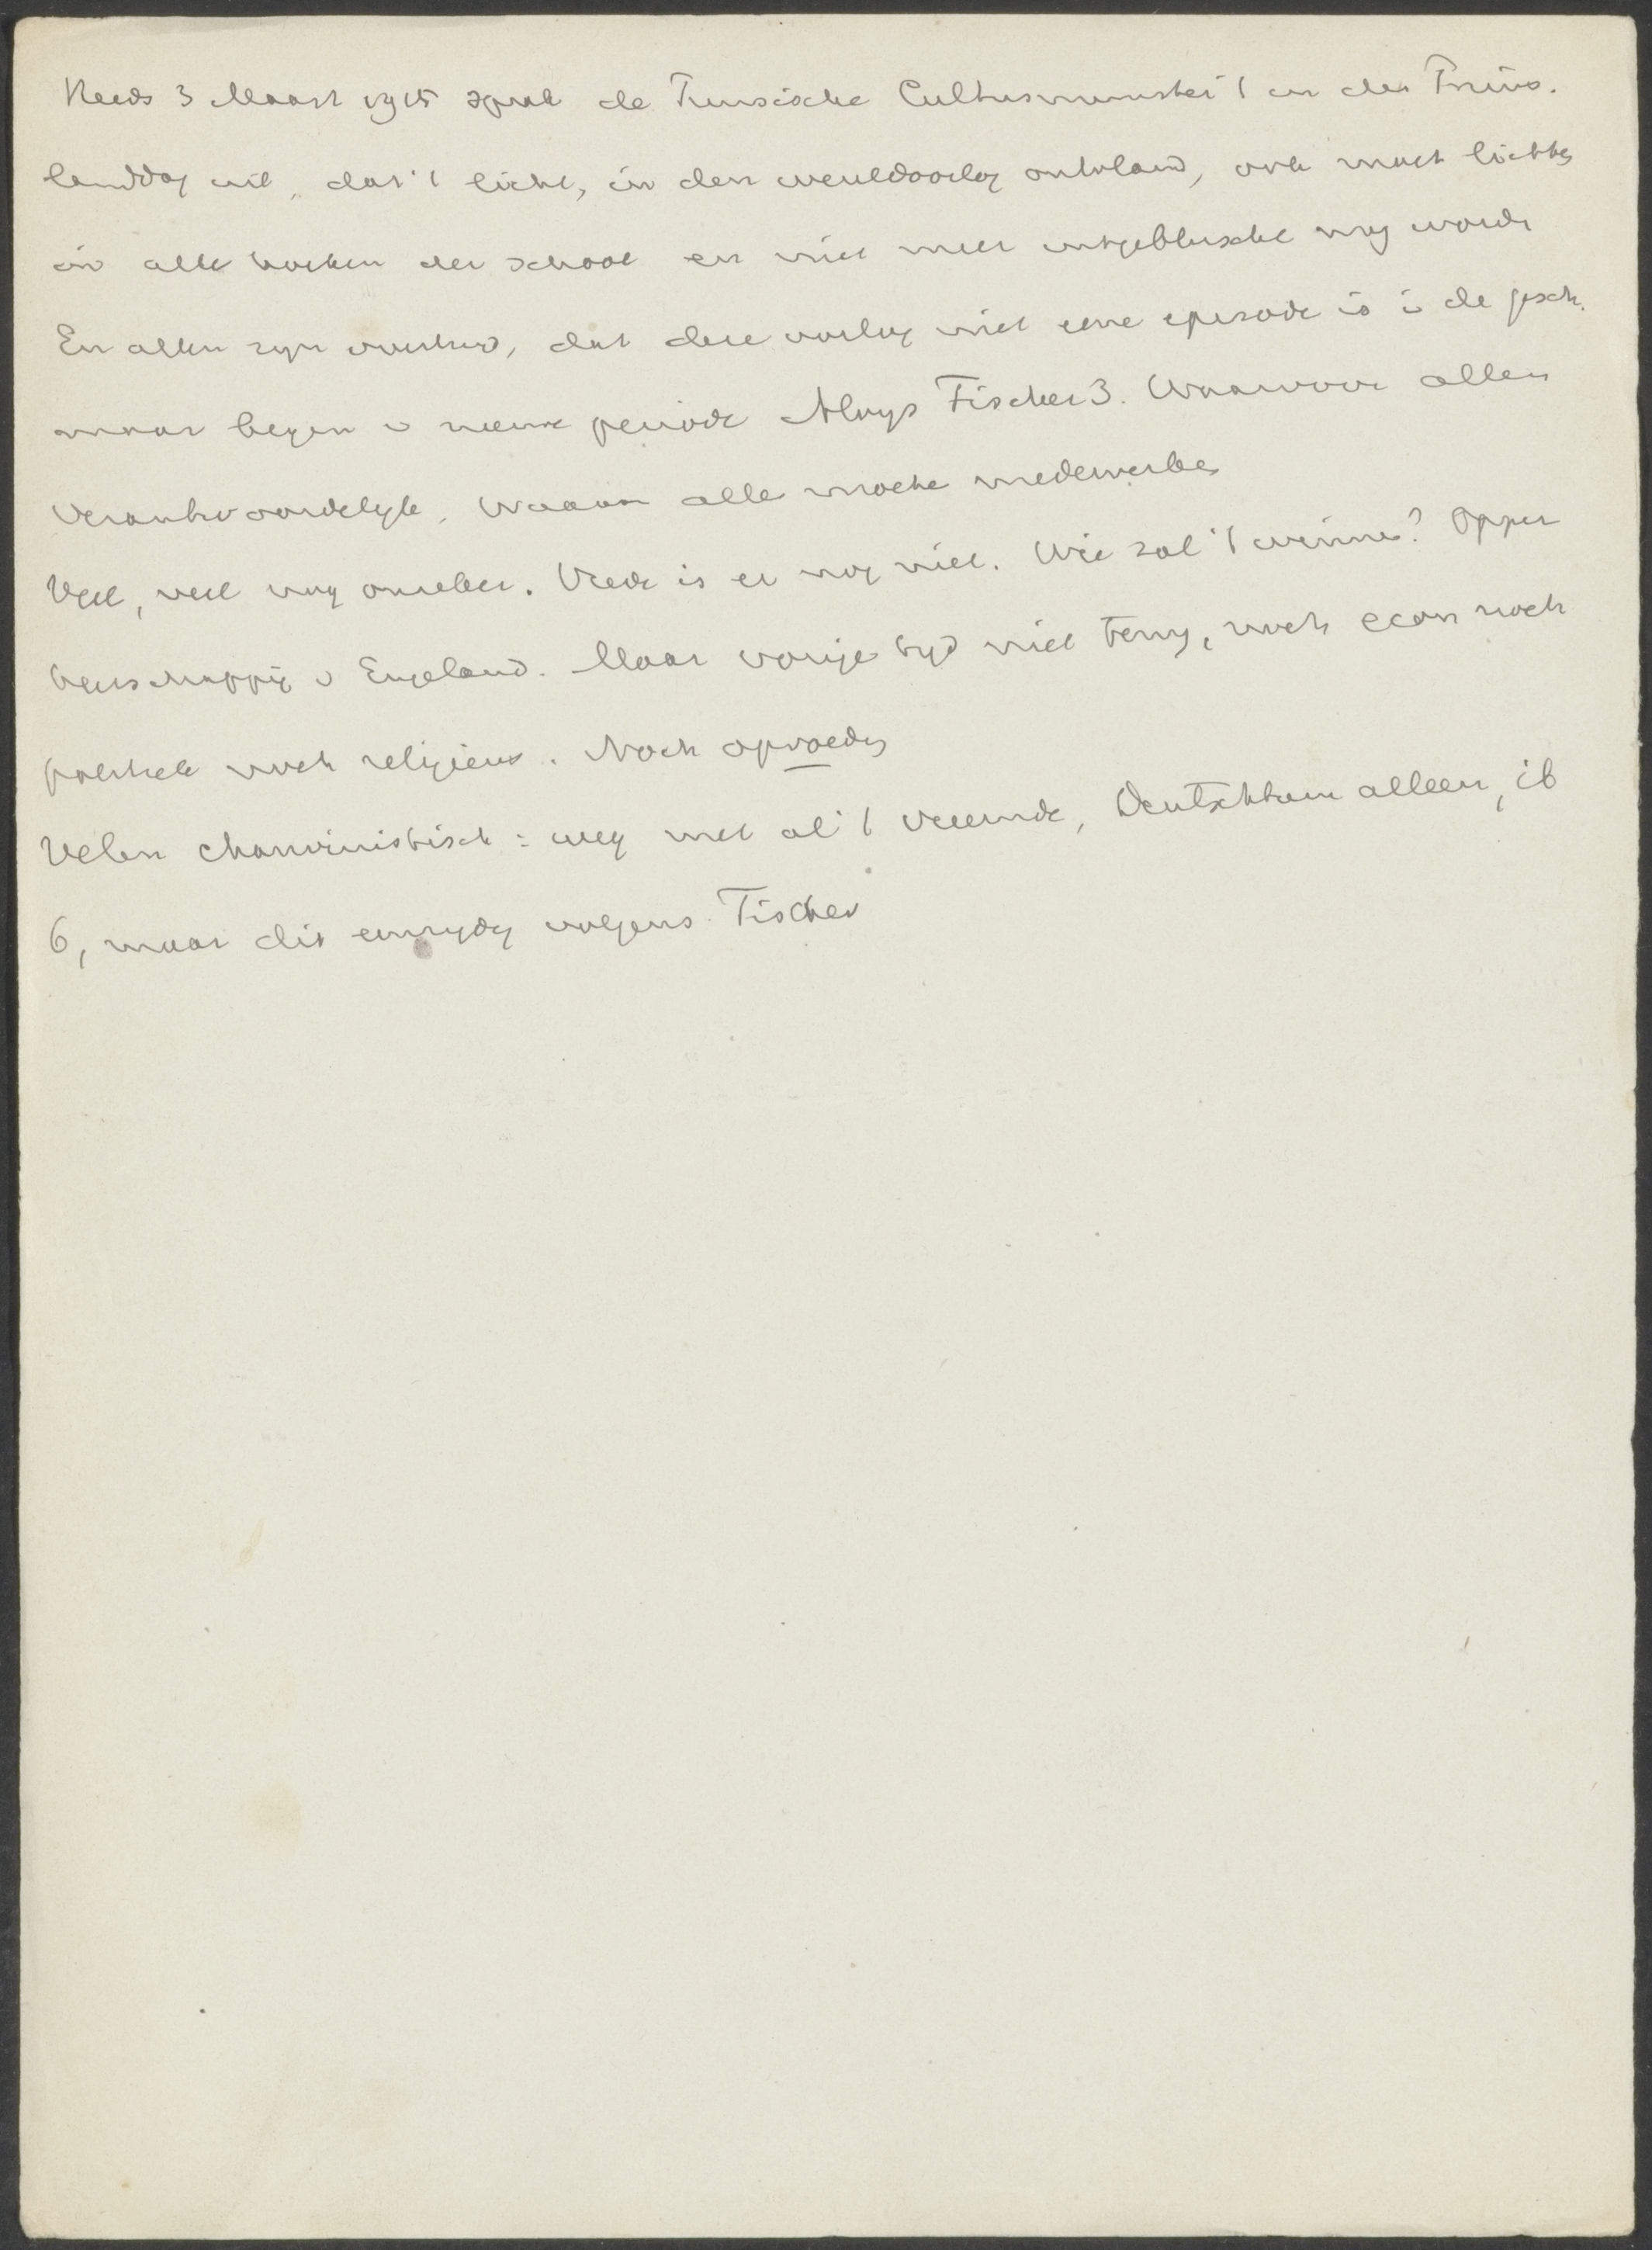 Reeds 3 Maart 1915 sprak de Pruisische Cultusminister 't in den Pruis.
landdag uit, dat 't licht, in den wereldoorlog ontvlamd, ook moet lichten
in alle hoeken der school en niet meer uitgebluscht mag worden
En allen zijn overtuigd, dat deze oorlog niet eene episode is i de gesch.
maar begin v nieuwe periode Aloys Fischer 3. Waarvoor allen
verantwoordelijk, Waaraan alle moeten medewerken
Veel, veel nog onzeker. Vrede is er nog niet. Wie zal 't winnen? Opper
heerschappij v Engeland. Maar vorige tijd niet terug, noch econ noch
politiek noch religieus. Noch opvoeding
Velen chauvinistisch: weg met al 't vreemde, Deutschtum alleen, ib
6, maar dit eenzijdig volgens Fischer